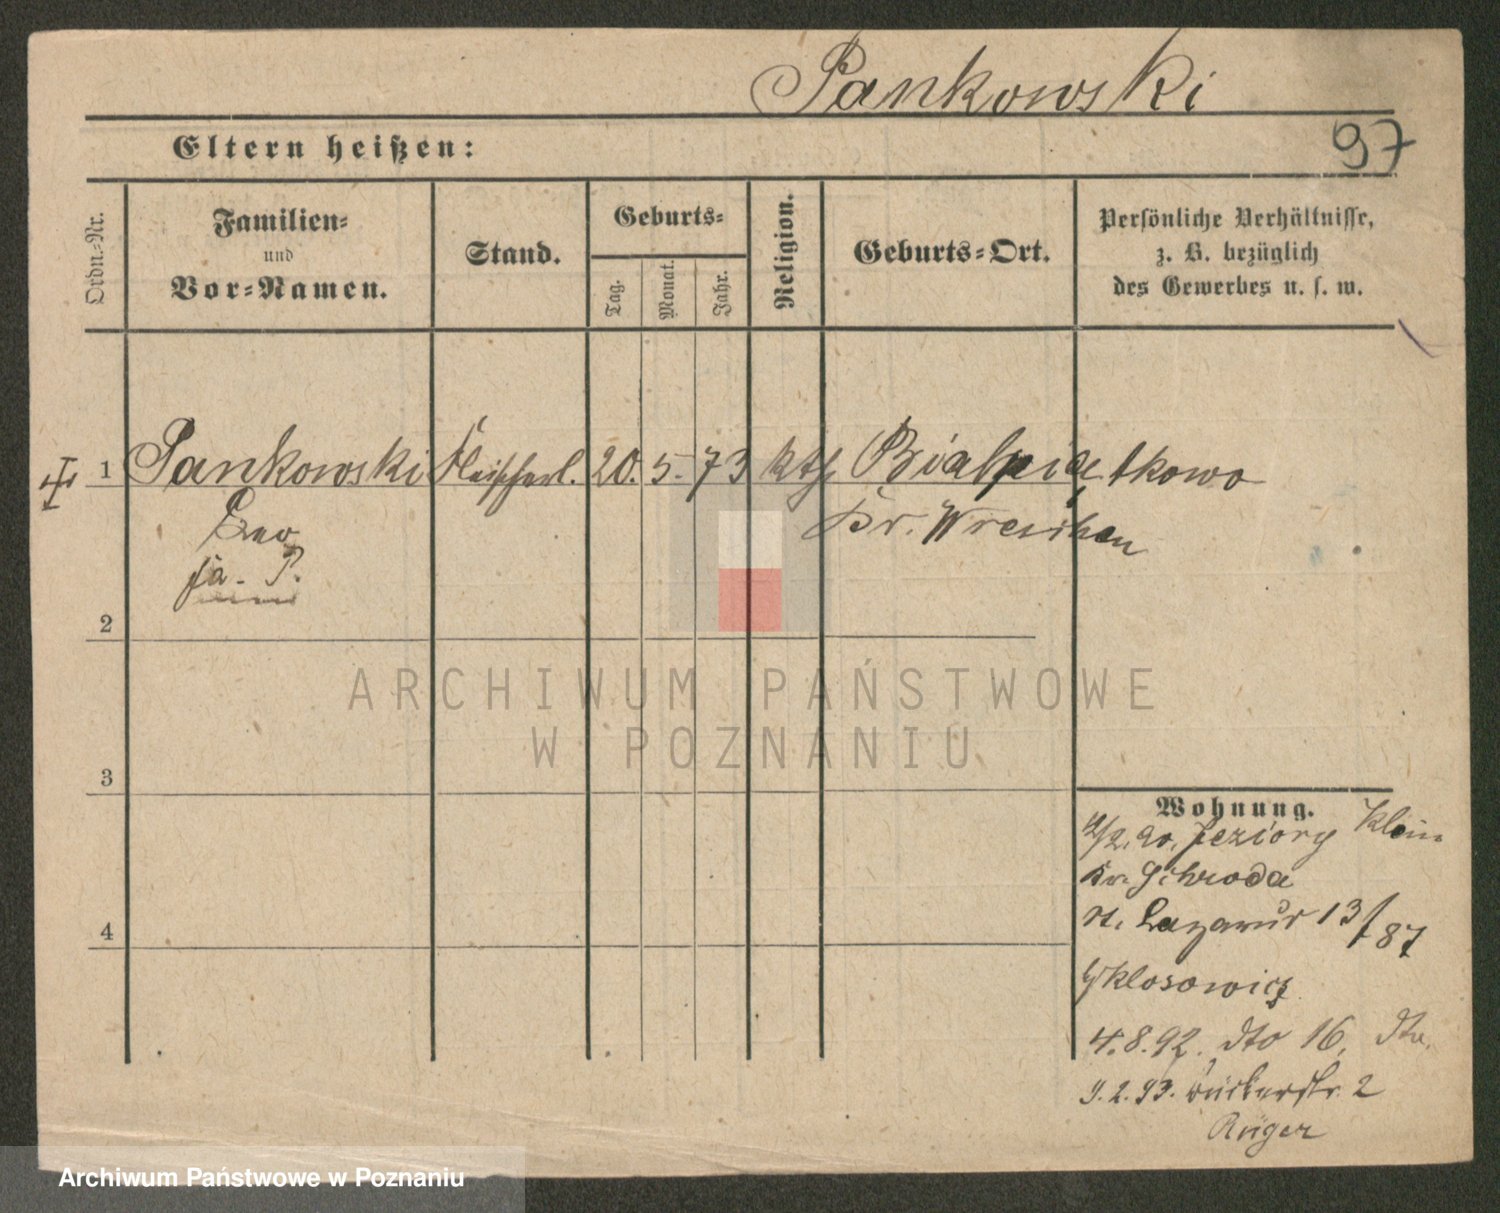 Pankowski
97
Eltern heißen:
Ordn.-Nr.
Familien-
und
Vor-Namen.
Stand.
Geburts-
Tag.
Monat.
Jahr.
Religion.
Geburts-Ort.
Persönliche Verhältnisse,
z. B. bezüglich
des Gewerbes u. s. w.
1 Pankowski Fleischerl. 20. 5. 73 kth Bialpiątkowo
Leo
Kr. Wreschen
fa. P.
2
ARCHIWUM PAŃSTWOWE
W POZNANIU
3
Wohnung.
4/2. 90. Jeziory Klein
Kr. Schroda
St. Lazarus 13/87
Klosowicz
4
4. 8. 92. dto 16. dto.
9. 2. 93. Bäckerstr. 2
Rüger
Archiwum Państwowe w Poznaniu